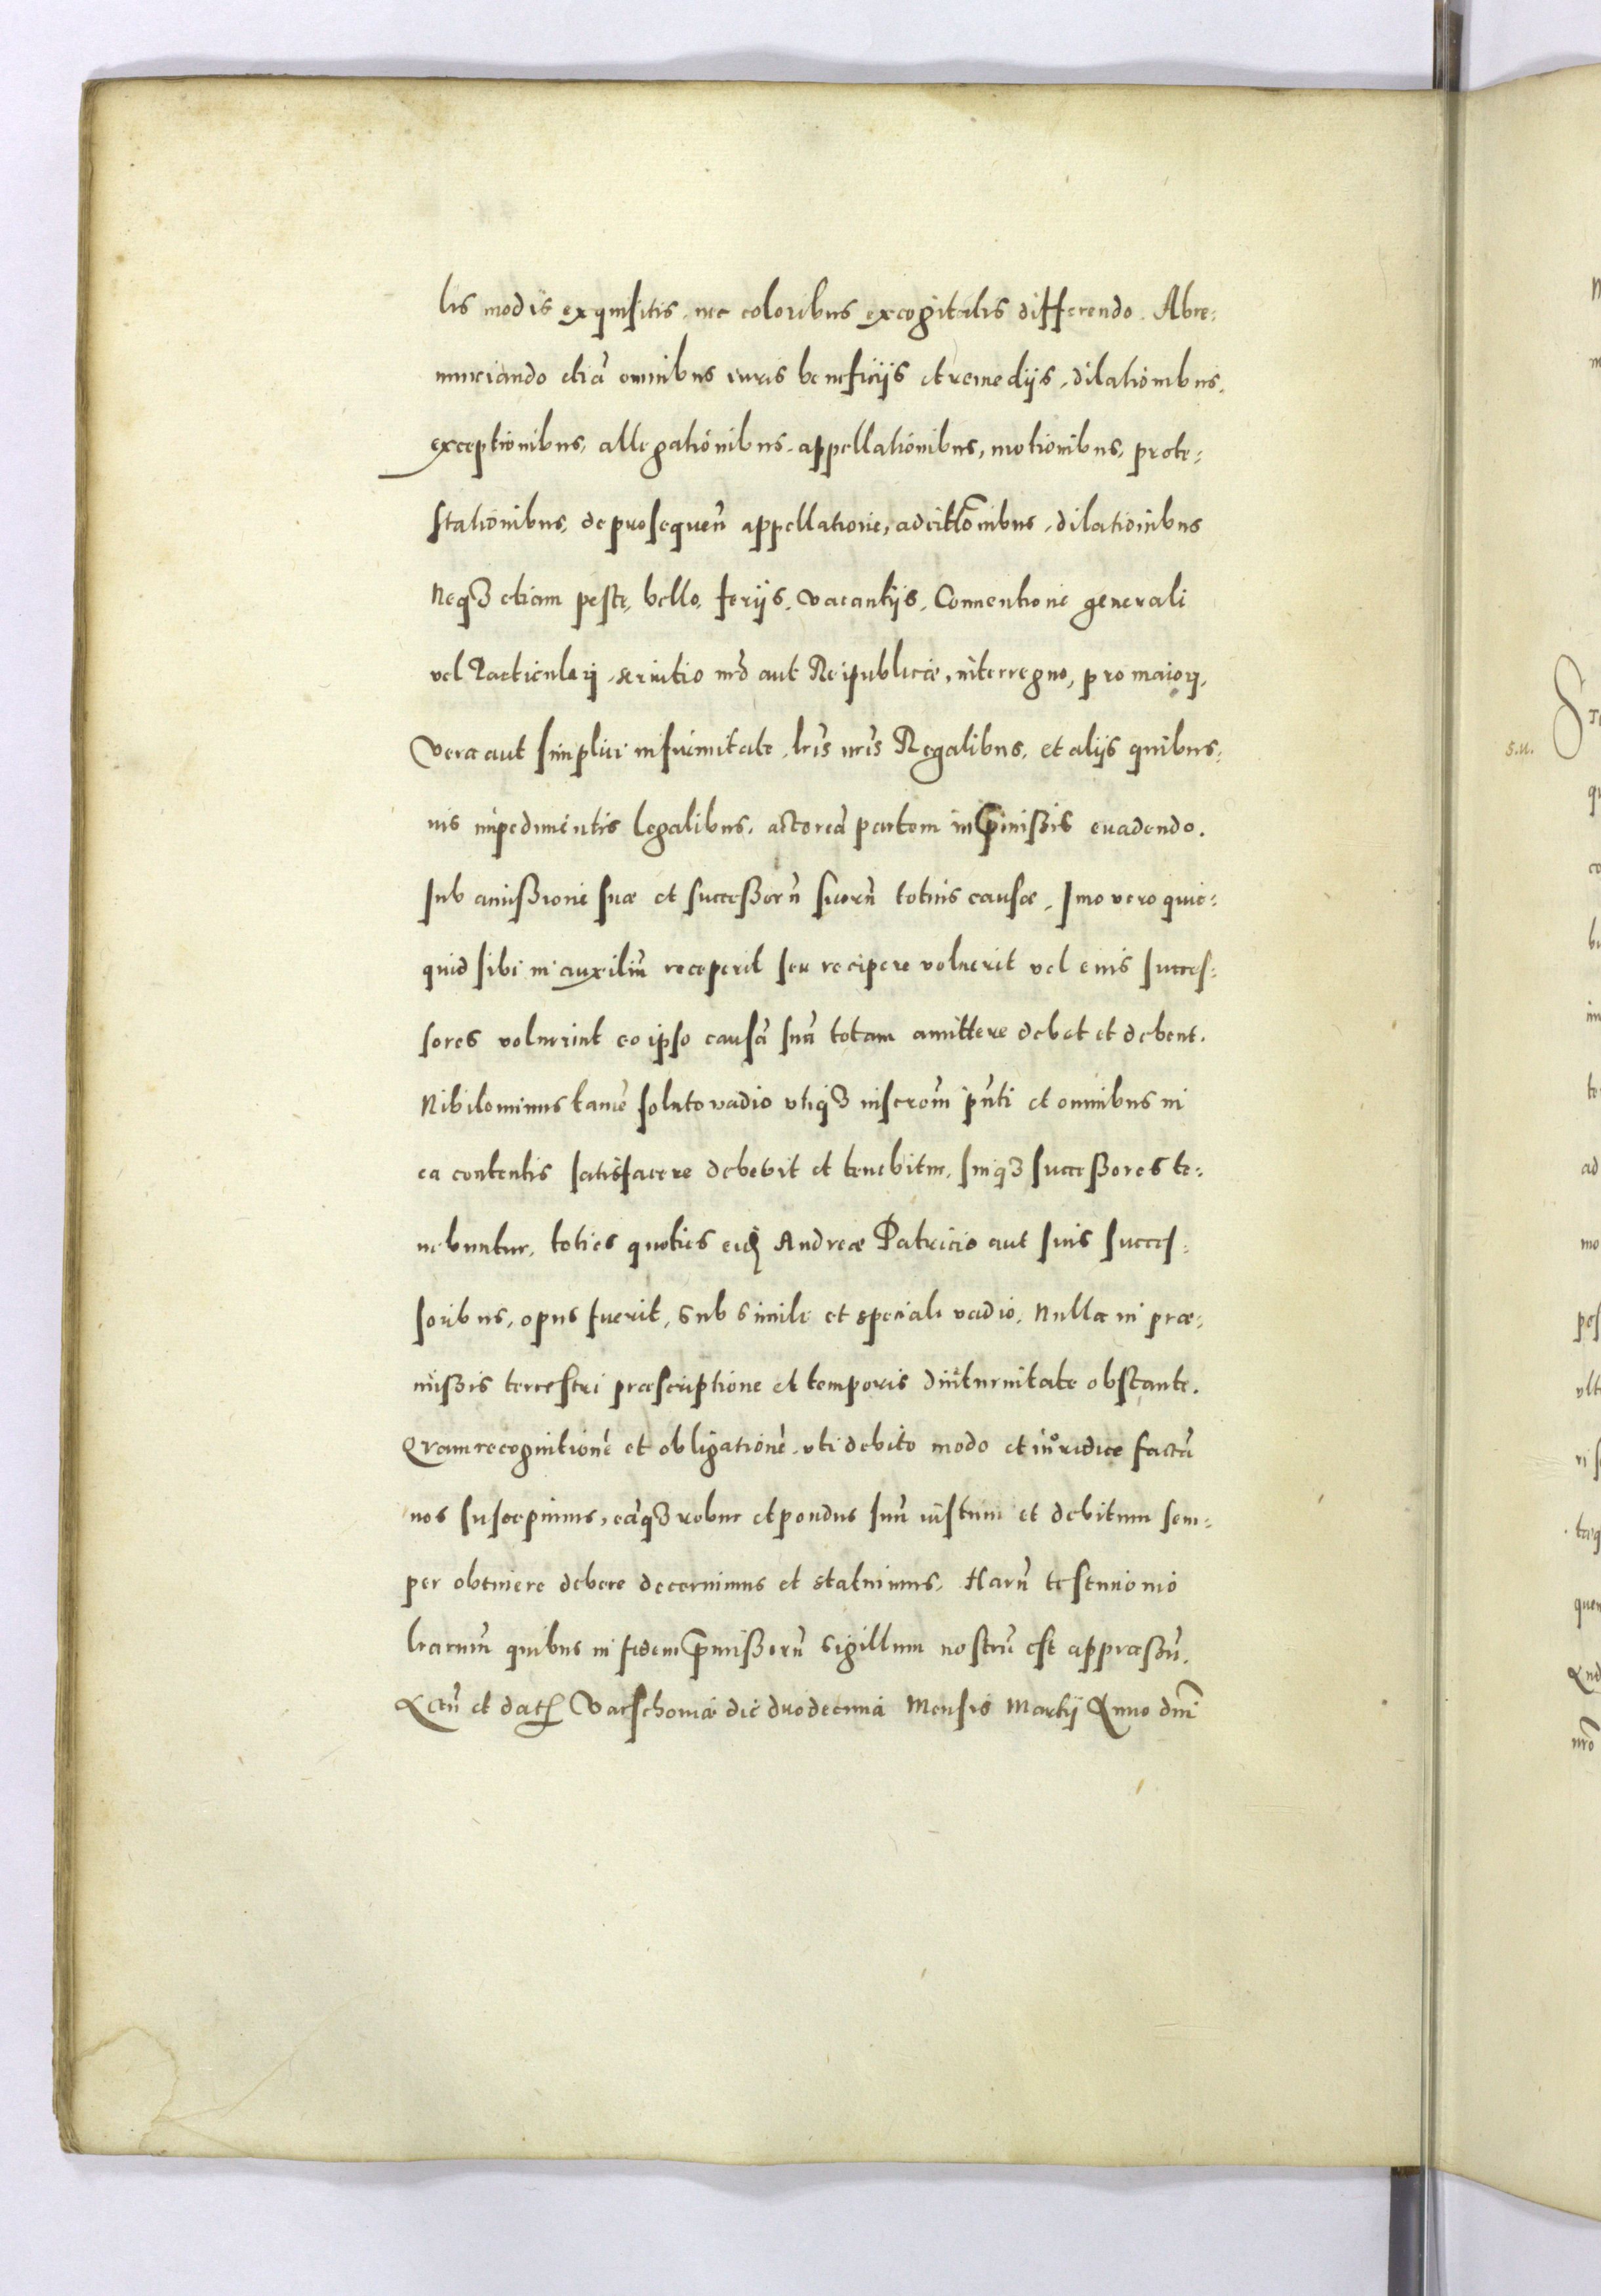 lis modis exquisitis, nec coloribus excogitatis differendo. Abre:
nunciando etiā omnibus iuris beneficijs et remedijs, dilationibus,
exceptionibus, allegationibus, appellationibus, motionibus, prote:
stationibus, de prosequeñ appellatione, adcittōnibus, dilationibus
Neqȝ etiam peste, bello, ferijs, vacantijs, Conuentione generali
vel Particulari, seruitio nrō aut Reipublicæ, interregno, pro maiori,
Vera aut simplici infirmitate, lrīs nrīs Regalibus, et alijs quibus:
uis impedimentis legalibus, actoreā partem in p̄missis euadendo.
Sub amissione suæ et successorū suorū totius causæ, Imo vero quic:
quid sibi in auxiliū receperit seu recipere voluerit vel eius succes:
sores voluerint eo ipso causā suā totam amittere debet et debent.
Nihilominus tamē soluto vadio vtiqȝ inscrom̄ pn̄ti et omnibus in
ea contentis satisfacere debebit et tenebitur, suiqȝ successores te:
nebuntur, toties quoties eidē Andreæ Patricio aut suis succes:
soribus, opus fuerit, sub simili et speciali vadio, Nulla in præ:
missis terrestri præscriptione et temporis diuturnitate obstante.
Qvam recognitionē et obligationē, vti debito modo et iuridice factā
nos suscepimus, eāqȝ robur et pondus suū iustum et debitum sem:
per obtinere debere decernimus et statuimus, Harū testimonio
lrarum̄ quibus in fidem p̄missorū sigillum nostrū est appræssū.
Actū et dat̄ Varschouiæ die duodecima Mensis Martij Anno dnī
S.u.